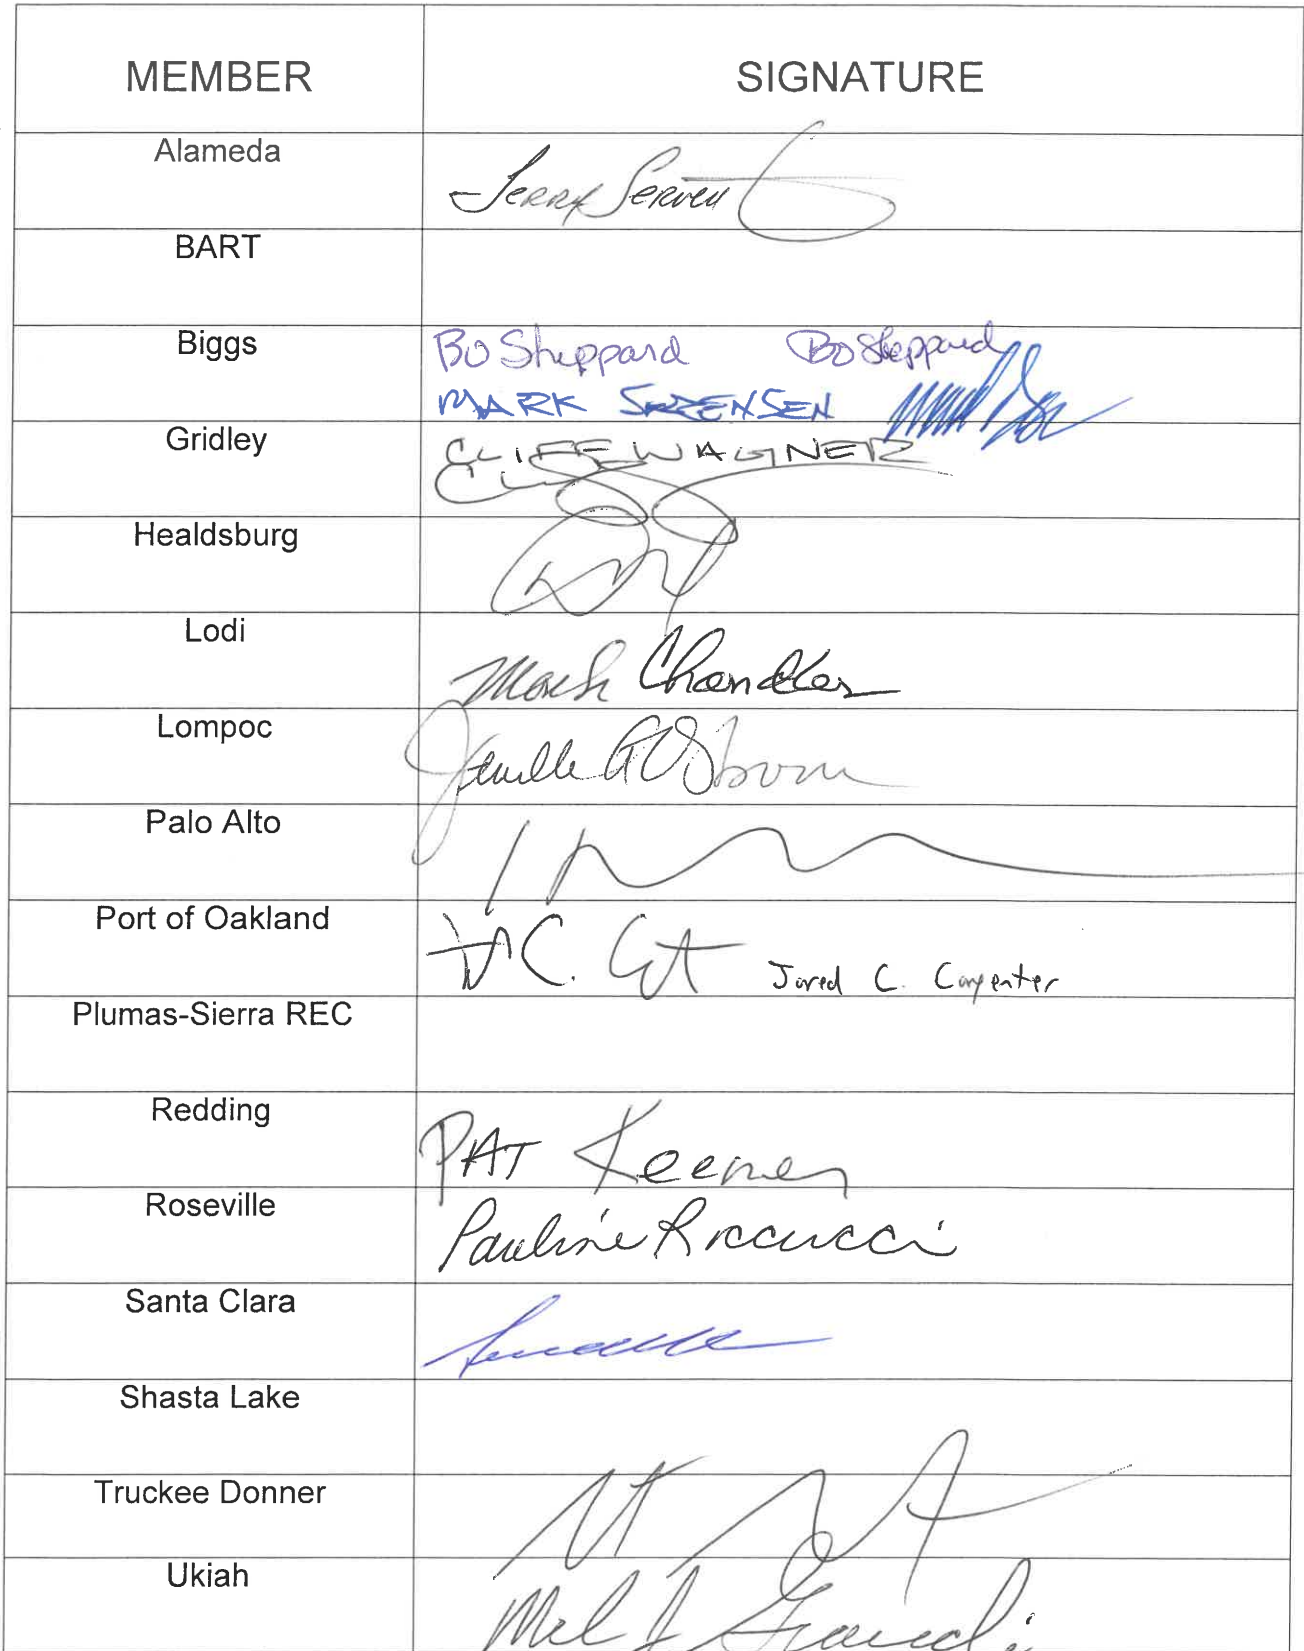 MEMBER SIGNATURE
Alameda Jerry Serven
BART
Biggs Bo Sheppard Bo Sheppard
MARK SORENSEN
Gridley CLIFF WAGNER
Healdsburg
Lodi Mark Chandler
Lompoc Jenelle Osborne
Palo Alto
Port of Oakland Jared C. Carpenter
Plumas-Sierra REC
Redding PAT Keener
Roseville Pauline Roccucci
Santa Clara
Shasta Lake
Truckee Donner
Ukiah